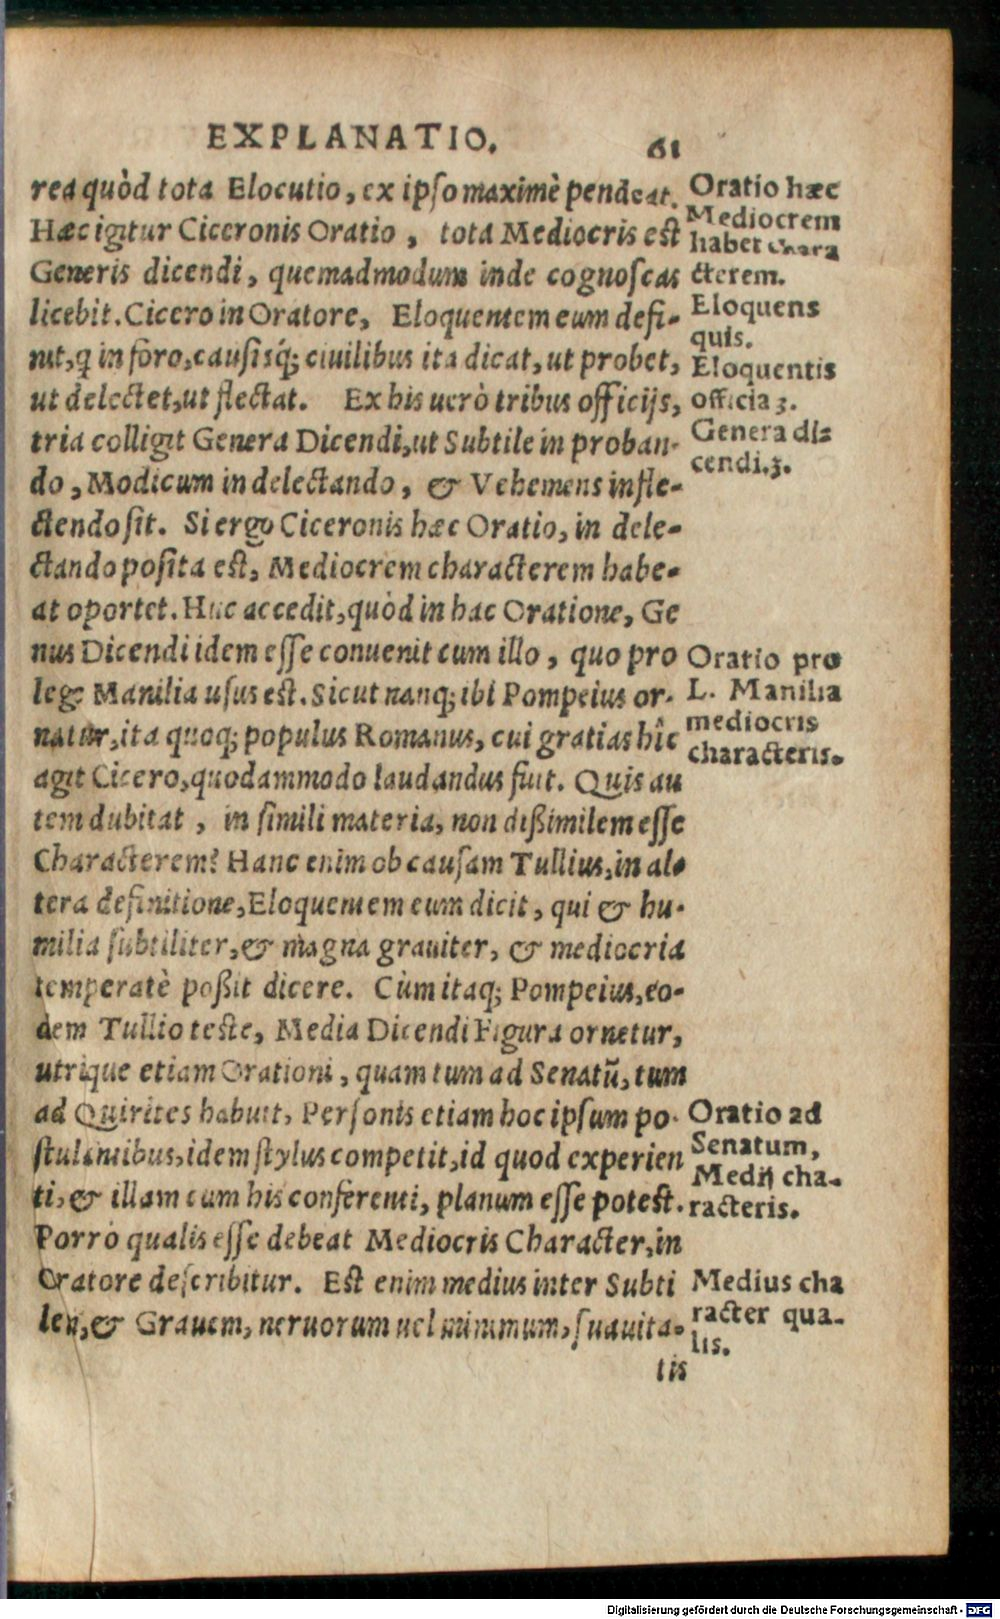 EXPLANATIO. 61
rea quòd tota Elocutio, ex ipso maximè pendeat.
Hæc igitur Ciceronis Oratio, tota Mediocris est
Generis dicendi, quemadmodum inde cognoscas
licebit. Cicero in Oratore, Eloquentem eum defi-
nit, q̃ in foro, causisq́; ciuilibus ita dicat, ut probet,
ut delectet, ut flectat. Ex his uerò tribus officijs,
tria colligit Genera Dicendi, ut Subtile in proban-
do, Modicum in delectando, & Vehemens in fle-
ctendo sit. Si ergo Ciceronis hæc Oratio, in dele-
ctando posita est, Mediocrem characterem habe-
at oportet. Huc accedit, quòd in hac Oratione, Ge
nus Dicendi idem esse conuenit cum illo, quo pro
lege Manilia usus est. Sicut nanq; ibi Pompeius or-
natur, ita quoq; populus Romanus, cui gratias hîc
agit Cicero, quodammodo laudandus fuit. Quis au
tem dubitat, in simili materia, non dißimilem esse
Characterem? Hanc enim ob causam Tullius, in al-
tera definitione, Eloquentem eum dicit, qui & hu-
milia subtiliter, & magna grauiter, & mediocria
temperatè poßit dicere. Cùm itaq; Pompeius, eo-
dem Tullio teste, Media Dicendi Figura ornetur,
utrique etiam Orationi, quam tum ad Senatũ, tum
ad Quirites habuit, Personis etiam hoc ipsum po-
stulantibus, idem stylus competit, id quod experien
ti, & illam cum his conferenti, planum esse potest.
Porrò qualis esse debeat Mediocris Character, in
Oratore describitur. Est enim medius inter Subti
len, & Grauem, neruorum uel minimum, suauita-
tis
Oratio hæc
Mediocrem
habet chara
cterem.
Eloquens
quis.
Eloquentis
officia 3.
Genera di-
cendi. 3.
Oratio pro
L. Manilia
mediocris
characteris.
Oratio ad
Senatum,
Medij cha-
racteris.
Medius cha
racter qua-
lis.
Digitalisierung gefördert durch die Deutsche Forschungsgemeinschaft - DFG